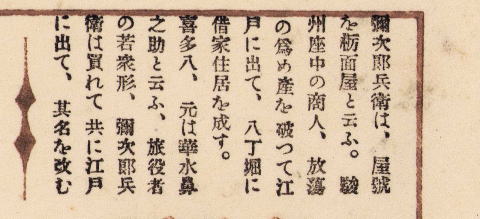 彌次郎兵衛は、屋號
を栃面屋と云ふ。駿
州座中の商人、放蕩
の爲め産を破つて江
戸に出て、八丁堀に
借家住居を成す。
喜多八、元は華水鼻
之助と云ふ、旅役者
の若衆形、彌次郎兵
衛は買れて共に江戸
に出て、其名を改む